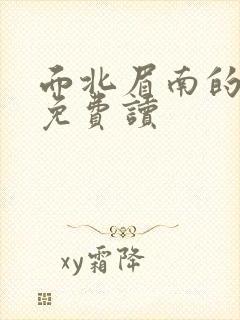 而北眉南的
免費讀
xy霜降